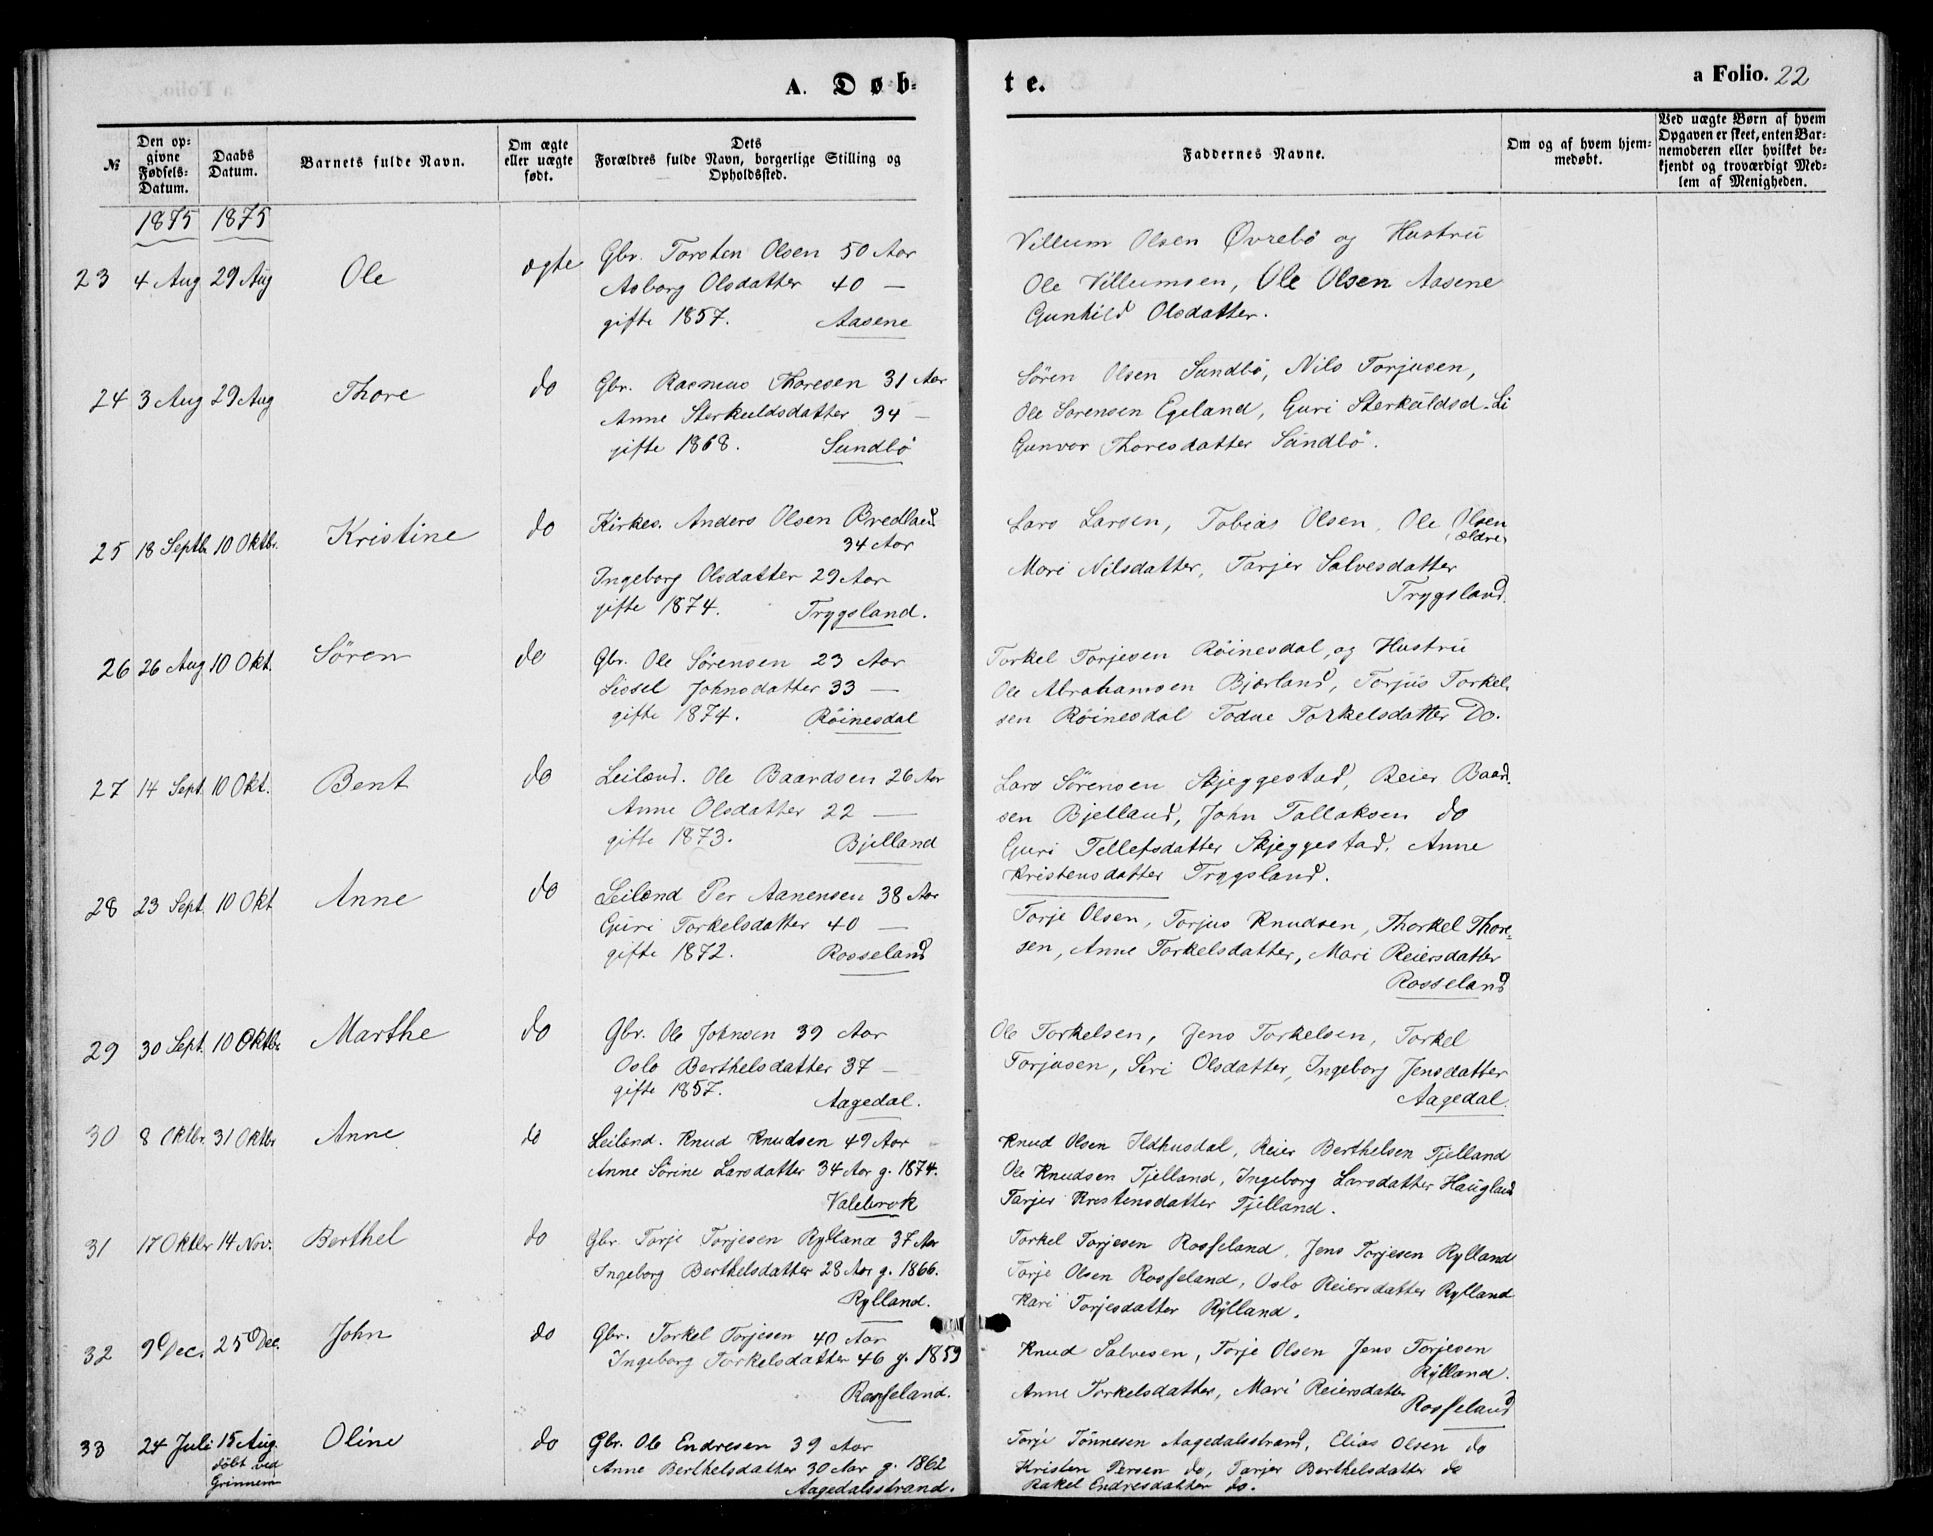 A. Døb-
te.
a Folio. 22
№
Den op-
givne
Fødsels-
Datum.
Daabs
Datum.
Barnets fulde Navn.
Om ægte
eller uægte
født.
Dets
Forældres fulde Navn, borgerlige Stilling og
Opholdssted.
Faddernes Navne.
Om og af hvem hjem-
medøbt.
Ved uægte Børn af hvem
Opgaven er skeet, enten Bar-
nemoderen eller hvilket be-
kjendt og troværdigt Med-
lem af Menigheden.
1875 1875
23 4 Aug 29 Aug Ole ægte
Gbr. Torsten Olsen 50 Aar
Asborg Olsdatter 40 —
gifte 1857. Aasene
Villum Olsen Øvrebö og Hustru
Ole Villumsen, Ole Olsen Aasene
Gunhild Olsdatter.
24 3 Aug 29 Aug Thore do
Gbr. Rasmus Thoresen 31 Aar
Anne Sterkuldsdatter 34 —
gifte 1868. Sundbö
Sören Olsen Sundbö, Nils Torjusen,
Ole Sorensen Egeland, Guri Sterkuldsd. Li
Gunvor Thoresdatter Sundbö.
25 18 Septb. 10 Oktbr. Kristine do
Kirkes. Anders Olsen Bredland
34 Aar
Ingeborg Olsdatter 29 Aar
gifte 1874. Trygsland.
Lars Larsen, Tobias Olsen, Ole Olsen
(ældre)
Mari Nilsdatter, Tarjer Salvesdatter
Trygsland.
26 26 Aug 10 Okt. Sören do
Gbr. Ole Sörensen 23 Aar
Sissel Johnsdatter 33 —
gifte 1874. Röinesdal
Torkel Torjesen Röinesdal, og Hustru
Ole Abrahamsen Bjærland, Torjus Torkel-
sen Röinesdal Todne Torkelsdatter Do.
27 14 Sept. 10 Okt. Bent do
Leilænd. Ole Baardsen 26 Aar
Anne Olsdatter 22 —
gifte 1873. Bjelland
Lars Sörensen Skjeggestad, Reier Baard-
sen Bjelland, John Tallaksen do
Guri Tellefsdatter Skjeggestad, Anne
Kristensdatter Trygsland.
28 23 Sept. 10 Okt Anne do
Leilænd Per Aanensen 38 Aar
Guri Torkelsdatter 40 —
gifte 1872. Rosseland
Torje Olsen, Torjus Knudsen, Thorkel Thore-
sen, Anne Torkelsdatter, Mari Reiersdatter
Rosseland
29 30 Sept. 10 Oktbr Marthe do
Gbr. Ole Johnsen 39 Aar
Oslo Berthelsdatter 37 —
gifte 1857. Aagedal.
Ole Torkelsen, Jens Torkelsen, Torkel
Torjusen, Seri Olsdatter, Ingeborg Jensdatter
Aagedal.
30 8 Oktbr. 31 Oktbr Anne do
Leilænd. Knud Knudsen 49 Aar
Anne Sörine Larsdatter 34 Aar g. 1874.
Valebrok
Knud Olsen Ildhusdal, Reier Berthelsen Tjelland
Ole Knudsen Tjelland, Ingeborg Larsdatter Haugland
Tarjer Kristensdatter Tjelland.
31 17 Oktbr 14 Nov. Berthel do
Gbr Torje Torjesen Rylland 37 Aar
Ingeborg Berthelsdatter 28 Aar g. 1866.
Rylland.
Torkel Torjesen Rosseland, Jens Torjesen Rylland
Torje Olsen Rosseland, Oslo Reiersdatter Rylland
Kari Torjesdatter Rylland.
32 9 Dec. 25 Dec. John do
Gbr. Torkel Torjesen 40 Aar
Ingeborg Torkelsdatter 46 g. 1859
Rosseland.
Knud Salvesen, Torje Olsen Jens Torjesen
Rylland.
Anne Torkelsdatter, Mari Reiersdatter
Rosseland
33 24 Juli 15 Aug. Oline do
döbt ved
Grinnem
Gbr. Ole Endresen 39 Aar
Anne Berthelsdatter 30 Aar g. 1862
Aagedalsstrand.
Torje Tönnesen Aagedalsstrand, Elias Olsen do
Kristen Persen do, Tarjer Berthelsdatter do
Rakel Endresdatter do.